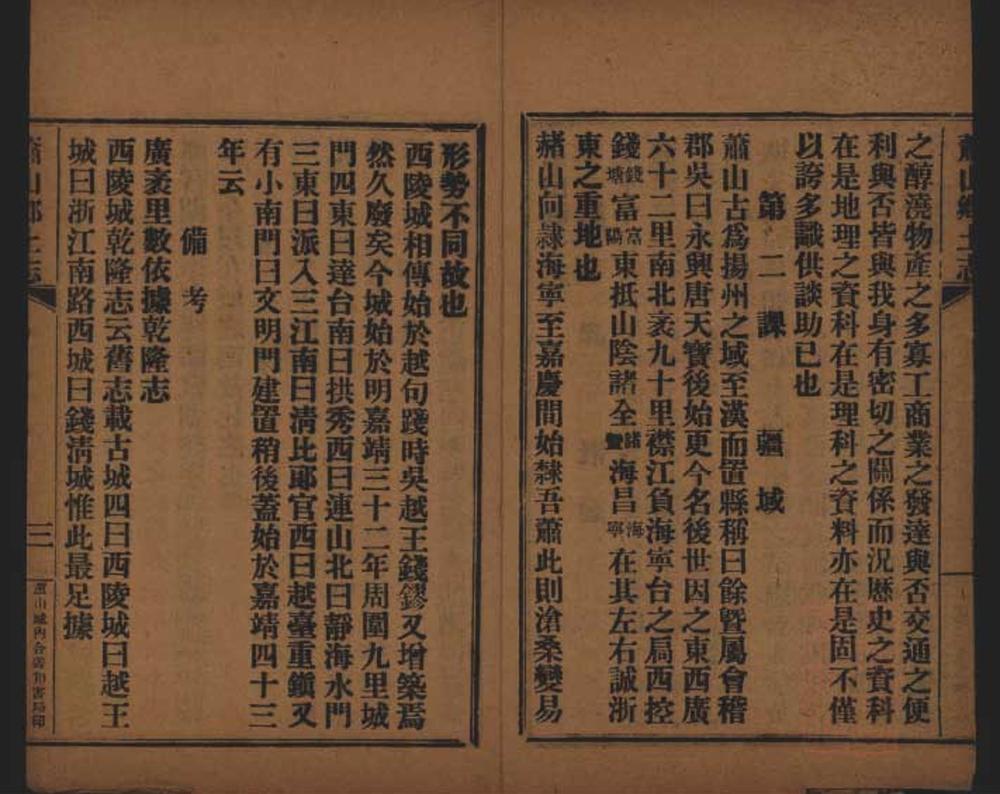 之醇澆物產之多寡工商業之發達與否交通之便
利與否皆與我身有密切之關係而況歷史之資科
在是地理之資科在是理科之資料亦在是固不僅
以誇多識供談助已也
第二課 疆域
蕭山古爲揚州之域至漢而置縣稱曰餘曁屬會稽
郡吳曰永興唐天寶後始更今名後世因之東西廣
六十二里南北袤九十里襟江負海寧台之扃西控
錢錢塘富富陽東抵山陰諸全諸曁海昌海寧在其左右誠浙
東之重地也
赭山向隸海寧至嘉慶間始隸吾蕭此則滄桑變易
形勢不同故也
西陵城相傳始於越句踐時吳越王錢鏐又增築焉
然久廢矣今城始於明嘉靖三十二年周圍九里城
門四東曰達台南曰拱秀西曰連山北曰靜海水門
三東曰派入三江南曰淸比郰官西曰越臺重鎭又
有小南門曰文明門建置稍後蓋始於嘉靖四十三
年云
備考
廣袤里數依據乾隆志
西陵城乾隆志云舊志載古城四曰西陵城曰越王
城曰浙江南路西城曰錢淸城惟此最足據
蕭山鄉土志
三
蕭山城內合義和書局印